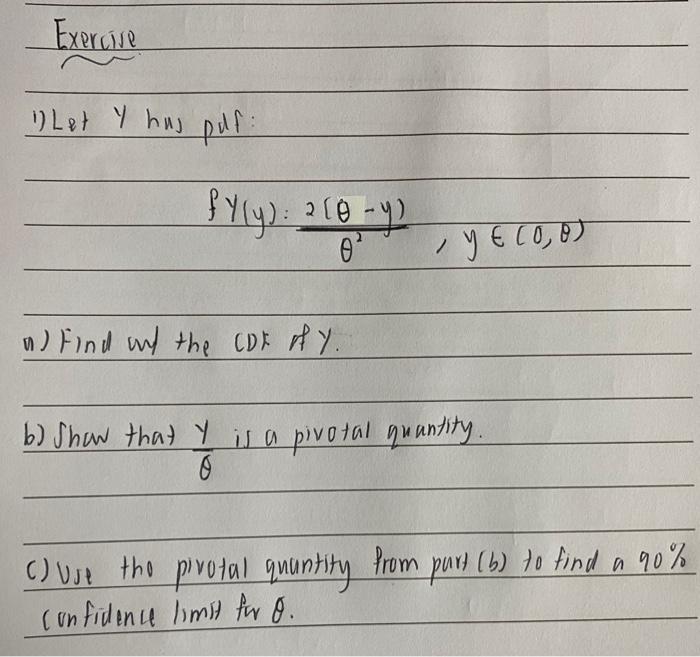 Exercise
1) Let Y has pdf:
fY(y): 2(θ-y)
θ² , y ∈ (0, θ)
a) Find out the CDF of Y.
b) Show that Y is a pivotal quantity.
θ
c) Use the pivotal quantity from part (b) to find a 90%
confidence limit for θ.